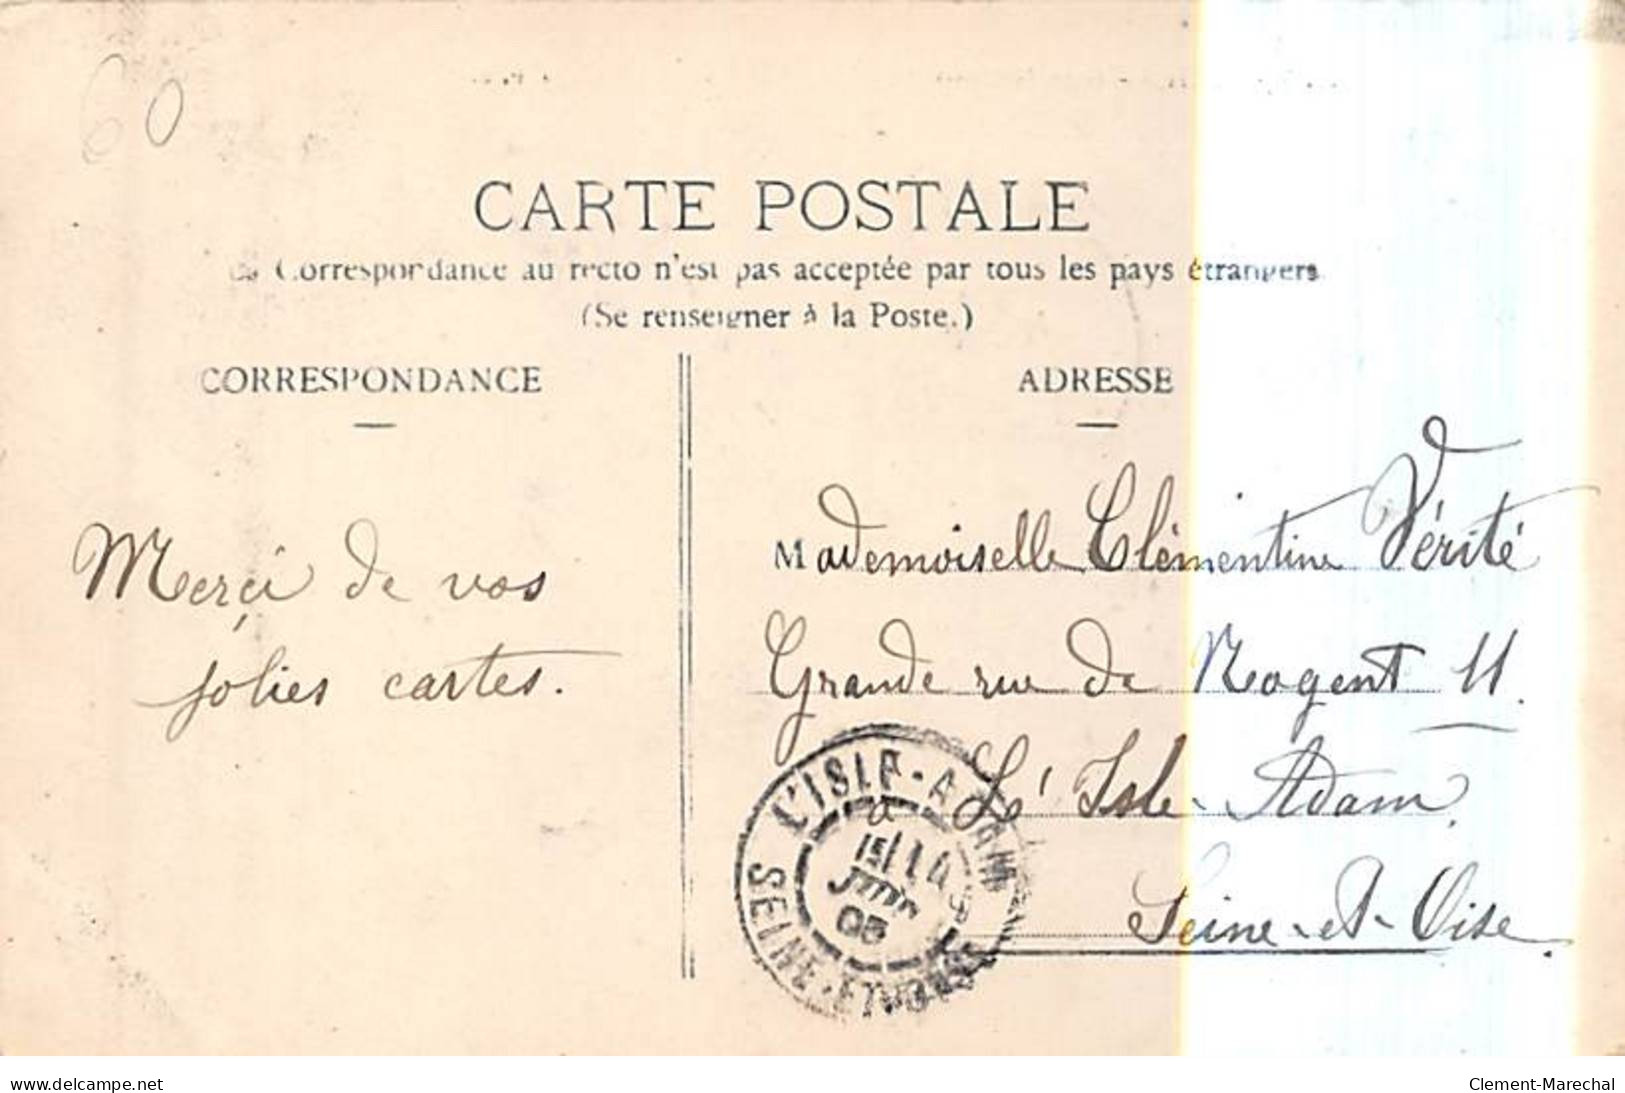 60
CARTE POSTALE
La Correspondance au recto n'est pas acceptée par tous les pays étrangers
(Se renseigner à la Poste.)
CORRESPONDANCE
ADRESSE
Merçi de vos
jolies cartes.
Mademoiselle Clémentine Vérité
Grande rue de Nogent 11.
L'Isle-Adam
Seine-et-Oise.
L'ISLE-ADAM
15/14
JUIN
05
SEINE-ET-OISE
www.delcampe.net
Clement-Marechal